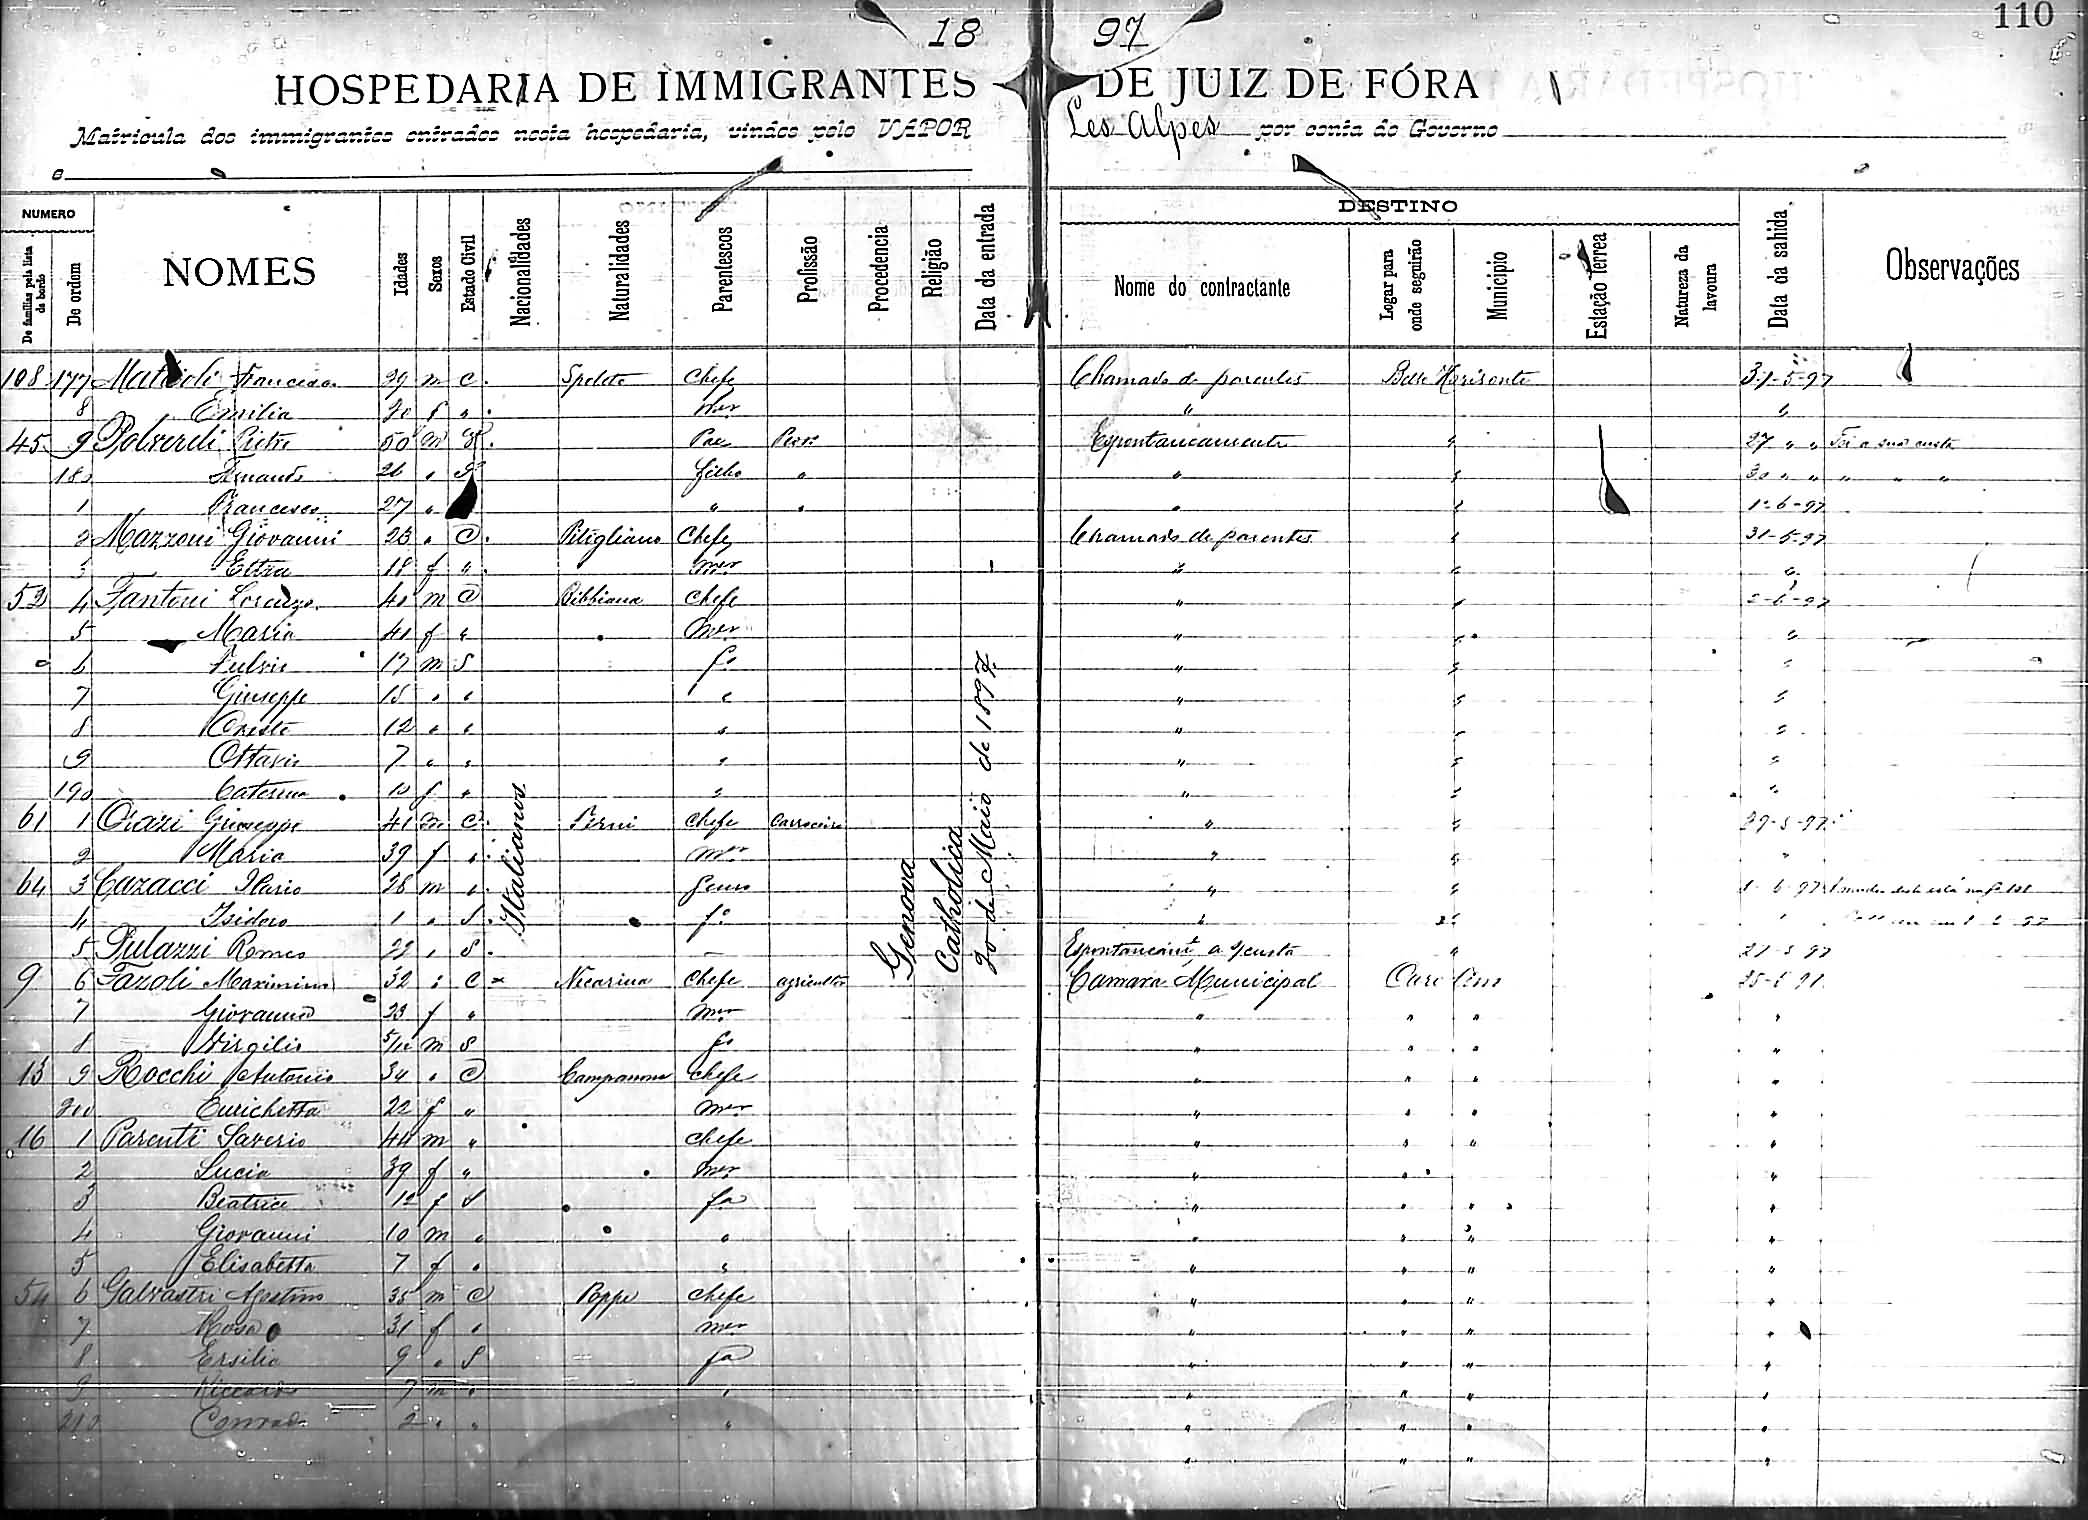 110
18 97
HOSPEDARIA DE IMMIGRANTES DE JUIZ DE FÓRA
Matricula dos immigrantes entrados nesta hospedaria, vindos pelo VAPOR Les Alpes por conta do Governo
NUMERO
De familias pela lista de bordo
De ordem
NOMES
Idades
Sexos
Estado Civil
Nacionalidades
Naturalidades
Parentescos
Profissão
Procedencia
Religião
Data da entrada
DESTINO
Nome do contractante
Logar para onde seguirão
Municipio
Estação ferrea
Natureza da lavoura
Data da sahida
Observações
Italianos
Genova
Catholica
20 de Maio de 1897
108 177 Francesco 29 m C. Spoleto Chefe Chamado de parentes Bello Horisonte 31-5-97
8 Emilia 20 f " mer " "
45 9 Pietro 50 m Pae Espontaneamente " 27 " " Foi a sua custa
180 26 " filho " " " 30 " " " " "
1 Francesco 27 " " " " " 1-6-97
2 Mazzoni Giovanni 23 " C. Pitigliano Chefe Chamado de parentes " 31-5-97
3 18 f " mer " " "
52 4 Fantoni Lorenzo 40 m C Bibbiana Chefe " " 2-6-97
5 Maria 41 f " mer " " "
6 Fulvio 17 m S fo " " "
7 Giuseppe 15 " " " " " "
8 Oreste 12 " " " " " "
9 Ottavio 7 " " " " " "
190 Caterina 10 f " " " " "
61 1 Orazi Giuseppe 41 m C. Terni Chefe Carroceiro " " 29-5-97
2 Maria 39 f " mer " " "
64 3 Cazacci Ilario 28 m " Genro " " 1-6-97
4 Isidoro 1 " S. fo " " "
5 Romeo 22 " S. — Espontaneamte a s/custa " 27-5-97
9 6 Fazoli Maximino 32 " C Chefe agricultor Camara Municipal 25-5-97
7 Giovanna 23 f " mer " " " "
8 Virgilio 5/12 m S fo " " " "
13 9 Rocchi Antonio 34 " C chefe " " " "
200 Enrichetta 22 f " mer " " " "
16 1 Parenti Saverio 44 m " chefe " " " "
2 Lucia 39 f " mer " " "
3 Beatrice 12 f S fa " " " "
4 Giovanni 10 m " " " " " "
5 Elisabetta 7 f " " " " " "
54 6 Galvastri Agostino 35 m C Poppi chefe " " " "
7 Rosa 31 f " mer " " " "
8 Ersilia 9 " S fa " " " "
9 Riccardo 7 m " " " " " "
210 Conrado 2 " " " " " " "
" " " "